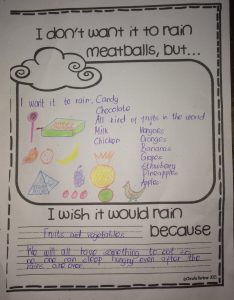 I don't want it to rain
meatballs, but...
I want it to rain, Candy
Chocolate
All kind of fruits in the world
Milk Mangoes
Chicken Oranges
Bananas
Grapes
Strawberry
Pineapples
Apples
I wish it would rain
Fruits and vegetables because
We will all have something to eat so
no one can sleep hungry even after the
rains are over.